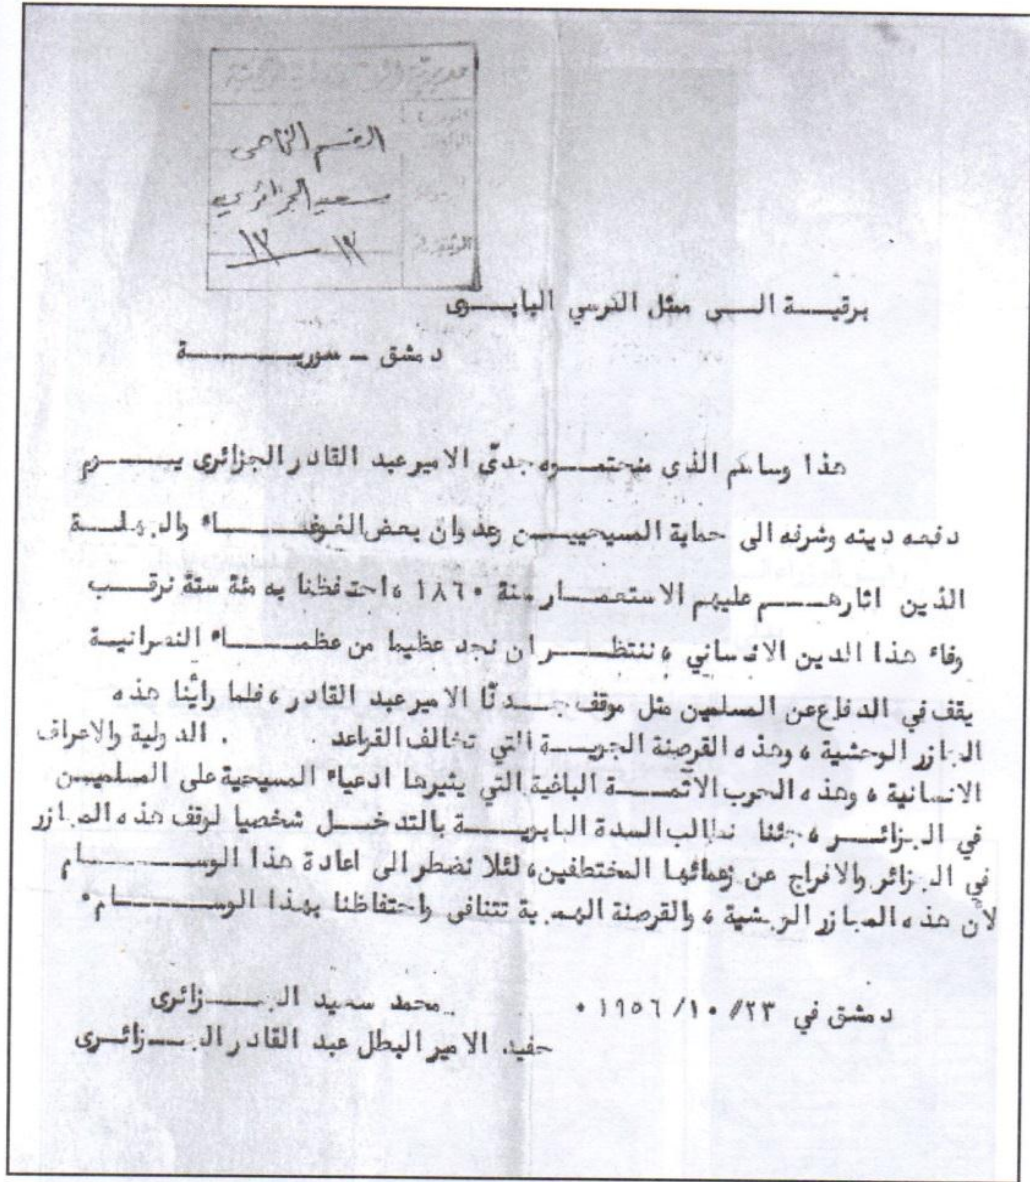 القسم الخاص
سعيد الجزائري
١٢ — ١٢
برقية الى ممثل الكرسي البابوى
دمشق - سورية
هذا وسامكم الذى منحتموه جدنّى الامير عبد القادر الجزائرى يوم
دفعه دينه وشرفه الى حماية المسيحيين وعدوان بعض الغوغاء والجهلة
الذين اثارهم عليهم الاستعمار سنة ١٨٦٠ ، احتفظنا به مئة سنة نرقب
وفاء هذا الدين الانساني ، ننتظر أن نجد عظيما من عظماء النصرانية
يقف في الدفاع عن المسلمين مثل موقف جدنّا الامير عبد القادر ، فلما رأينا هذه
المجازر الوحشية ، وهذه القرصنة الجوية التي تخالف القواعد . . الدولية والاعراف
الانسانية ، وهذه الحرب الاثمة الباغية التي يثيرها ادعياء المسيحية على المسلمين
في الجزائر ، جئنا نطالب السدة البابوية بالتدخل شخصيا لوقف هذه المجازر
في الجزائر والافراج عن زعمائها المختطفين، لئلا نضطر الى اعادة هذا الوسام
لأن هذه المجازر الوحشية ، والقرصنة الهمجية تتنافى واحتفاظنا بهذا الوسام ٠
دمشق في ٢٣/ ١٠/ ١٩٥٦ ٠ محمد سعيد الجزائرى
حفيد الامير البطل عبد القادر الجزائرى